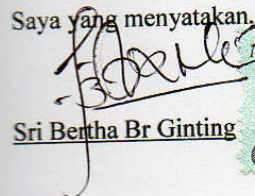 Saya yang menyatakan.
Sri Bertha Br Ginting